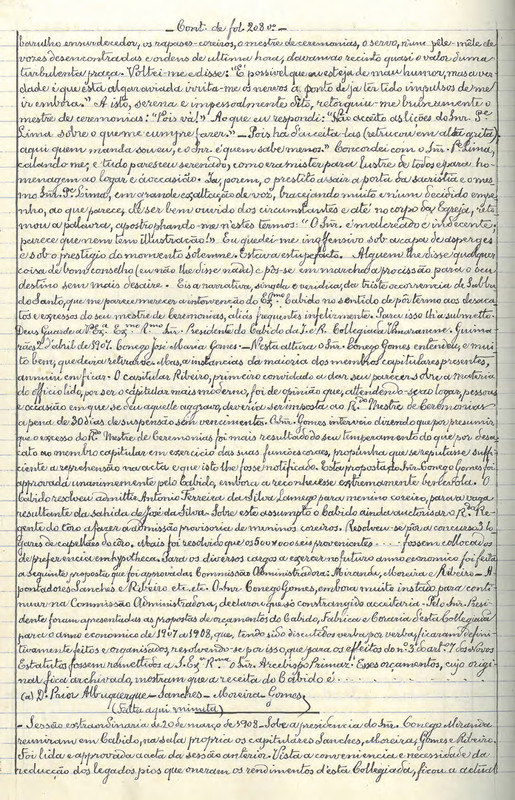 — Cont. de fol. 208 vº —
barulho ensurdecedor, os rapases-coreiros, o mestre de ceremonias, o servo, n'um péle-méle de
vozes desencontradas e ordens de ultima hora, davam ao recinto quasi o valor d'uma
turbulenta praça. Voltei-me e disse: "É possivel que eu esteja de mau humor, mas a ver-
dade é que esta algaraviada irrita-me os nervos a ponto de já ter tido impulsos de me
ir embora." A isto, serena e impessoalmente dito, retorquiu-me bruscamente o
mestre de ceremonias: "Pois vá!" Ao que eu respondi: "Não aceito as lições do Snr. Pe
Lima sobre o que me cumpre fazer." — Pois há d'aceita-las (retrucou em alta grita),
aqui quem manda sou eu, e o Snr. é quem sabe menos." Concordei com o Snr. Pe Lima,
calando-me; e tudo pareceu serenado, como era mister para lustre de todos e para ho-
menagem ao logar e á occasião. Ia, porem, o prestito a sair a porta da sacristia e o mes-
mo Snr. Pe Lima, em grande exaltação de voz, bracejando muito e n'um decidido empe-
nho, ao que parece, de ser bem ouvido dos circumstantes e até no corpo da Egreja, reto-
mou a palavra, apostrophando-me n'estes termos: "O Snr. é malcreado e indecente;
parece que nem tem illustração!" Eu quedei-me inoffensivo sob a capa de asperges
e sob o prestigio do momento solemne. Estava estupefacto. Alguem lhe disse qualquer
coisa de bom conselho (eu não lhe disse nada) e pôs-se em marcha a procissão para o seu
destino sem mais desaire. Eis a narrativa, singela e veridica, da triste occorrencia de Sabbado
Santo, que me parece merecer a intervenção do Exmo Cabido no sentido de pôr termo aos desaca-
tos e excessos do seu mestre de Ceremonias, aliás frequentes infelizmente. Para isso lh'a submetto.
Deus Guarde a Vª Exª Exmo e Rmo Snr. Presidente do Cabido da I. e R. Collegiada Vimaranense. Guima-
rães 2 d'abril de 1907. Conego José Maria Gomes. — N'esta altura o Snr. Conego Gomes entendeu, e mui-
to bem, que devia retirar-se. Mas, a instancias da maioria dos membros capitulares presentes,
annuiu em ficar. O capitular Ribeiro, primeiro convidado a dar seu parecer sobre a materia
do officio lido, por ser o capitular mais moderno, foi de opinião que, attendendo-se ao logar, pessoas
e occasião em que se deu aquelle aggravo, deveria ser imposta ao Rdo Mestre de Ceremonias
a pena de 30 dias de suspensão sem vencimentos. O Snr. Gomes interveio dizendo que por presumir
que o excesso do Rdo Mestre de Ceremonias foi mais resultado do seu temperamento do que por desa-
cato ao membro capitular em exercicio das suas funcções coraes, propunha que se reputasse suffi-
ciente a reprehensão na acta e que isto lhe fosse notificado. Esta proposta do Snr. Conego Gomes foi
approvada unanimemente pelo Cabido, embora a reconhecesse extremamente benevola. O
Cabido resolveu admittir Antonio Ferreira da Silva Lamego para menino coreiro, para a vaga
resultante da sahida de José da Silva. Sobre este assumpto o Cabido ainda auctorisou o Rdo Re-
gente do Côro a fazer a admissão provisoria de meninos coreiros. Resolveu-se pôr a concurso 3 lo-
gares de capellães do côro. Mais foi resolvido que os 500:000 seus provenientes ..... fossem collocados
de preferencia em hypotheca. Para os diversos cargos a exercer no futuro anno economico foi feita
a seguinte proposta que foi approvada: Commissão Administradora: Miranda, Moreira e Ribeiro — A-
pontadores Sanches e Ribeiro etc. etc. O Snr. Conego Gomes, embora muito instado para conti-
nuar na Commissão Administradora, declarou que só constrangido acceitaria. Pelo Snr. Presi-
dente foram apresentadas as propostas de orçamentos do Cabido, Fabrica e Coraria d'esta Collegiada
para o anno economico de 1907 a 1908, que, tendo sido discutidos verba por verba, ficaram defini-
tivamente feitos e organisados, resolvendo-se por isso, que para os effeitos do nº 3 do artº 17 dos Novos
Estatutos fossem remettidos a S. Exª Rma o Snr. Arcebispo Primaz. Esses orçamentos, cujo origi-
nal fica archivado, mostram que a receita do Cabido é ........
(a) D. Prior Albuquerque — Sanches — Moreira — Gomes
(Falta aqui minuta)
— Sessão extraordinaria de 20 de março de 1908 — Sob a presidencia do Snr. Conego Miranda
reuniram em Cabido, na sala propria os capitulares Sanches, Moreira, Gomes e Ribeiro.
Foi lida e approvada a acta da sessão anterior. Vista a conveniencia e necessidade da
reducção dos legados pios que oneram os rendimentos d'esta Collegiada, ficou a actual